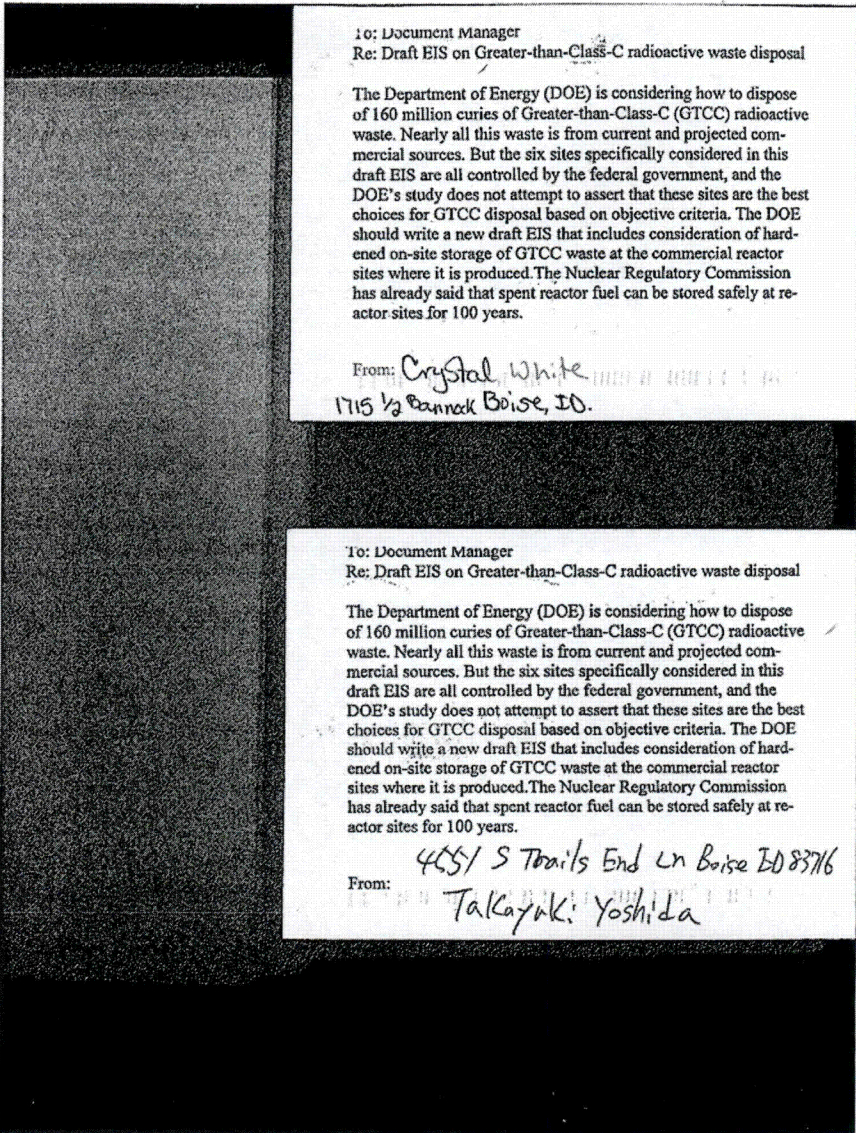 To: Document Manager
Re: Draft EIS on Greater-than-Class-C radioactive waste disposal
The Department of Energy (DOE) is considering how to dispose
of 160 million curies of Greater-than-Class-C (GTCC) radioactive
waste. Nearly all this waste is from current and projected com-
mercial sources. But the six sites specifically considered in this
draft EIS are all controlled by the federal government, and the
DOE's study does not attempt to assert that these sites are the best
choices for GTCC disposal based on objective criteria. The DOE
should write a new draft EIS that includes consideration of hard-
ened on-site storage of GTCC waste at the commercial reactor
sites where it is produced.The Nuclear Regulatory Commission
has already said that spent reactor fuel can be stored safely at re-
actor sites for 100 years.
From: Crystal White
1715 1/2 Bannock Boise, ID.
To: Document Manager
Re: Draft EIS on Greater-than-Class-C radioactive waste disposal
The Department of Energy (DOE) is considering how to dispose
of 160 million curies of Greater-than-Class-C (GTCC) radioactive
waste. Nearly all this waste is from current and projected com-
mercial sources. But the six sites specifically considered in this
draft EIS are all controlled by the federal government, and the
DOE's study does not attempt to assert that these sites are the best
choices for GTCC disposal based on objective criteria. The DOE
should write a new draft EIS that includes consideration of hard-
ened on-site storage of GTCC waste at the commercial reactor
sites where it is produced.The Nuclear Regulatory Commission
has already said that spent reactor fuel can be stored safely at re-
actor sites for 100 years.
S Trails End Ln Boise ID 83716
From:
Takayuki Yoshida